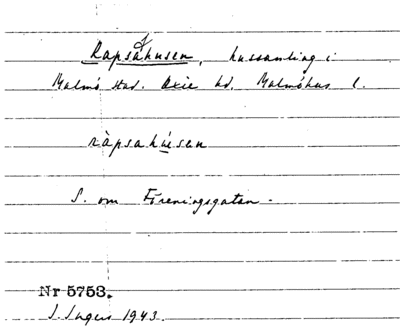 Rapsahusen, hussamling i
Malmö stad. Oxie hd. Malmöhus l.
ràpsahúsen
S. om Föreningsgatan.
Nr 5753.
J. Ingers 1943.